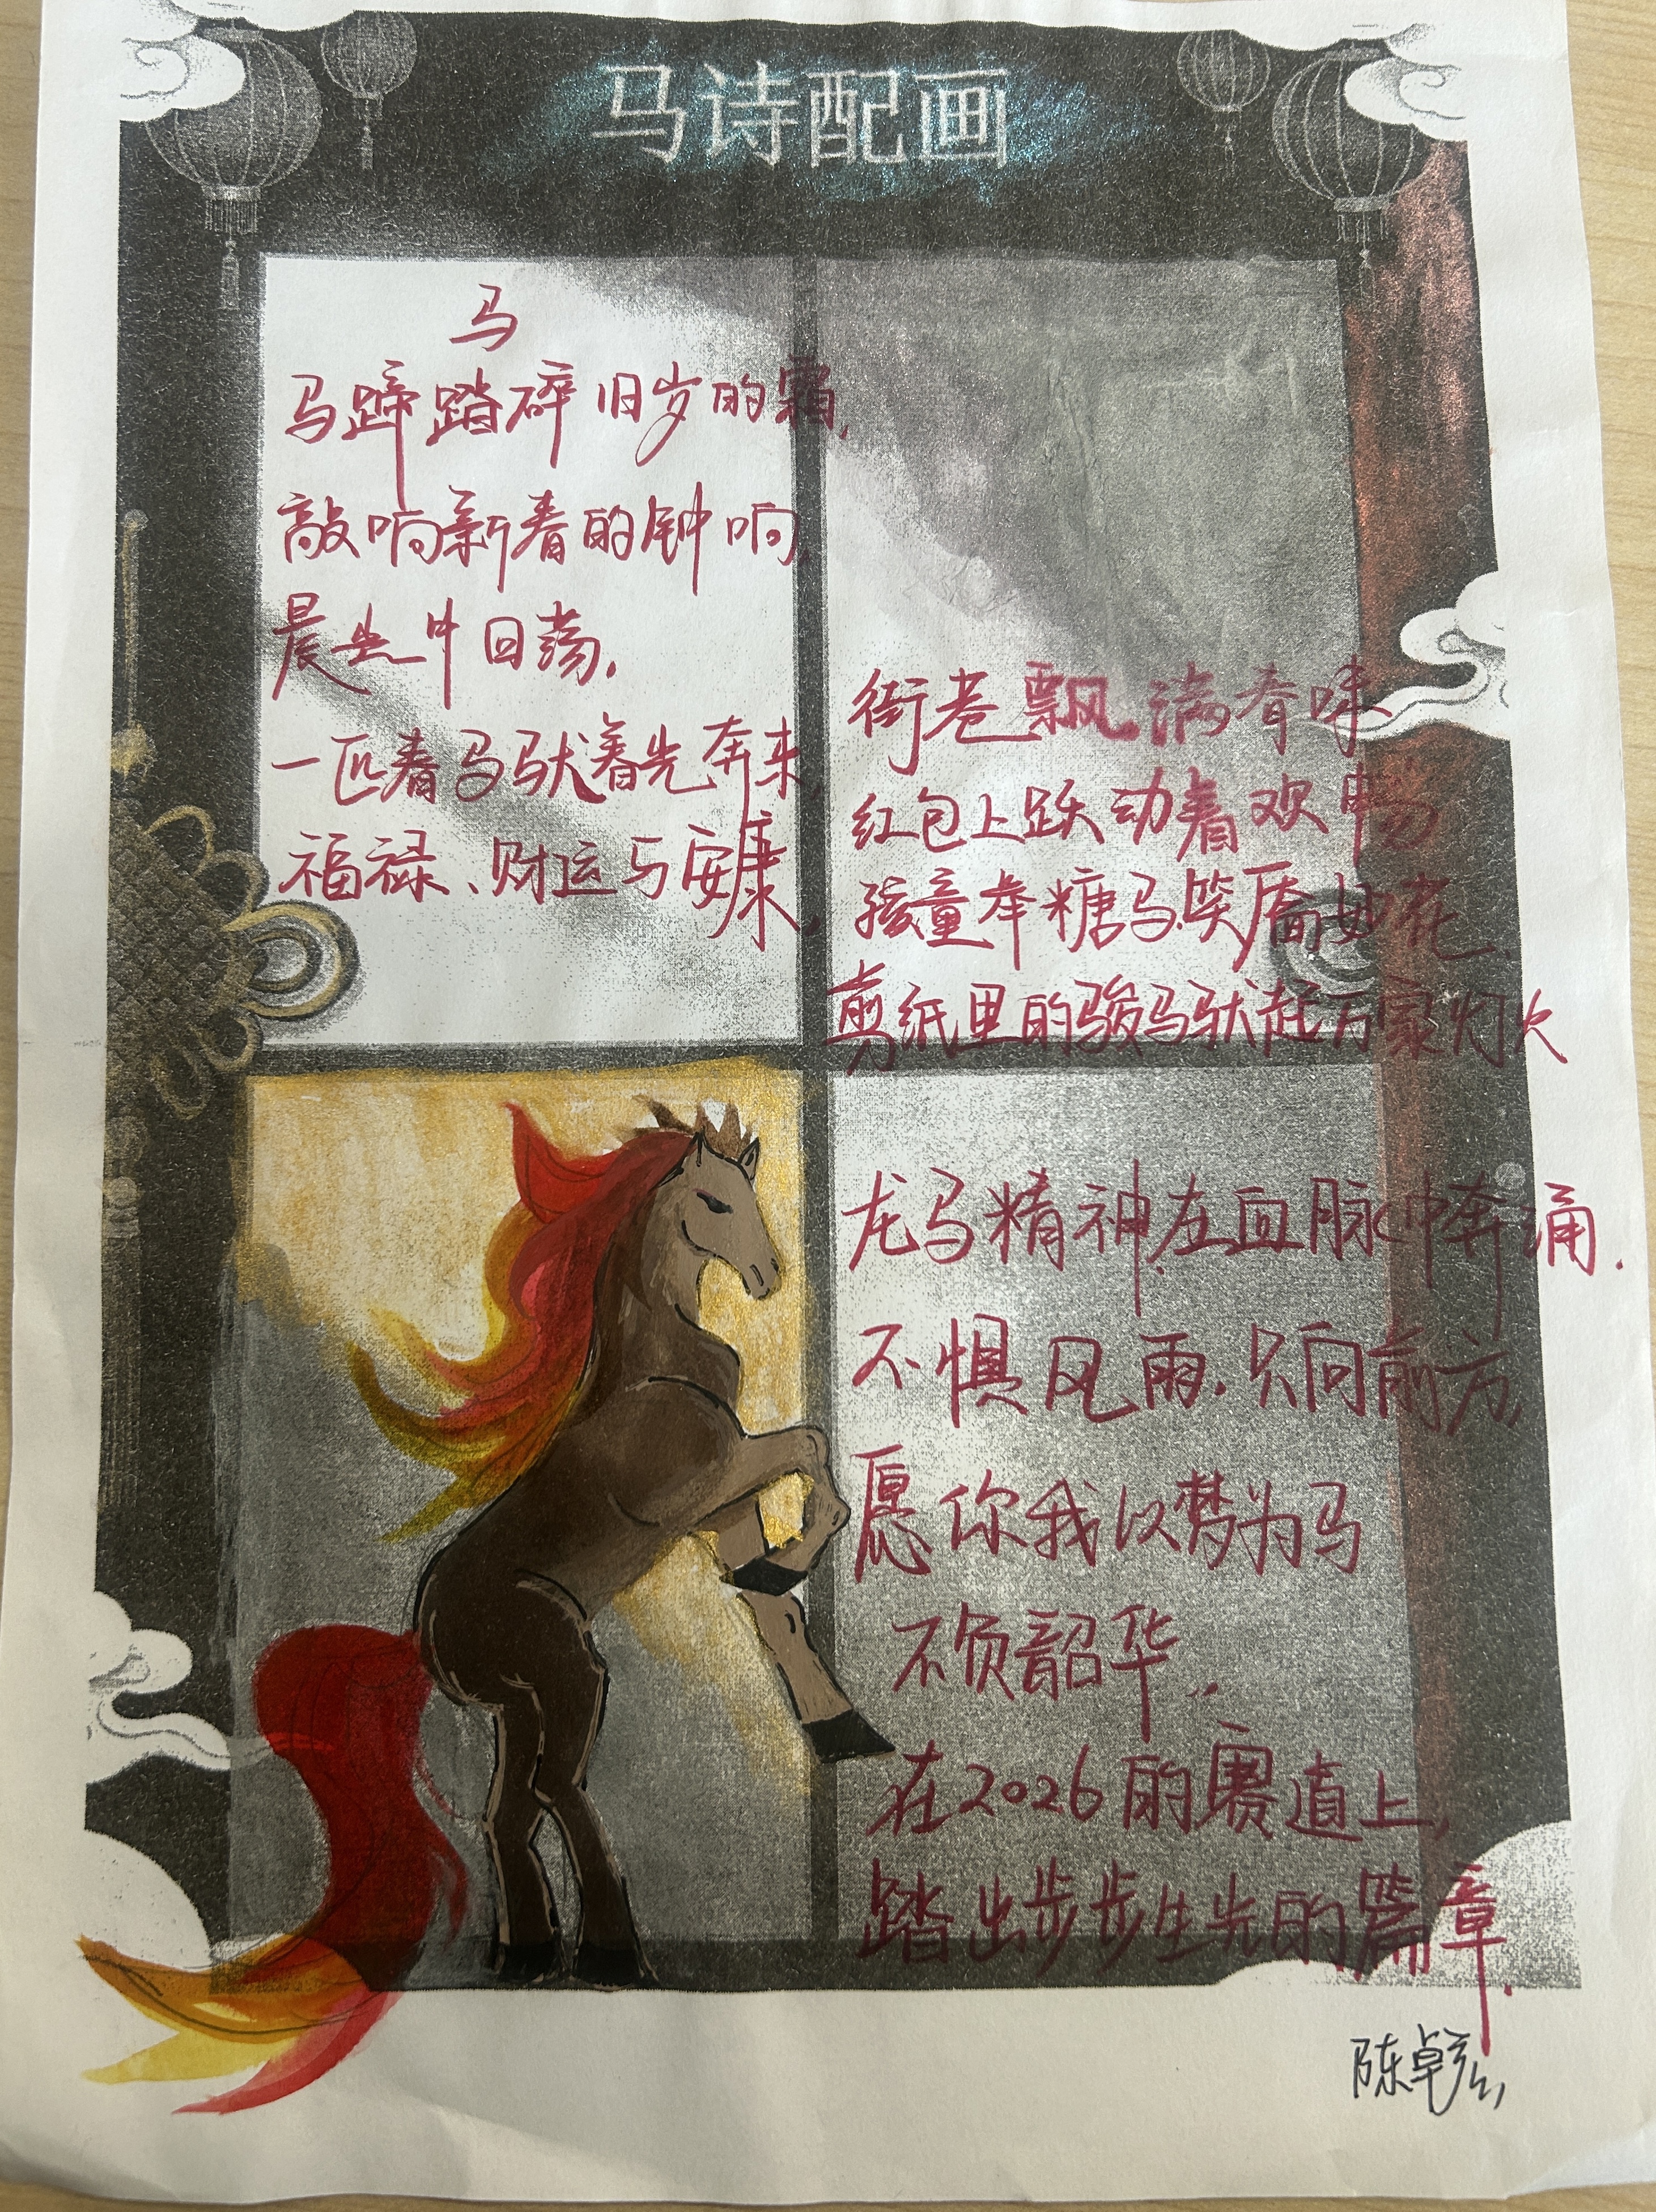 马诗配画
马
马蹄踏碎旧岁的霜,
敲响新春的钟响,
晨光中回荡.
一匹春马驮着光奔来,
福禄、财运与安康,
街巷飘满春味
红包上跃动着欢畅
孩童举糖马笑靥如花、
剪纸里的骏马驮起万家灯火
龙马精神在血脉中奔涌.
不惧风雨.只向前方,
愿你我以梦为马
不负韶华..
在2026的赛道上,
踏出步步生光的篇章.
陈卓